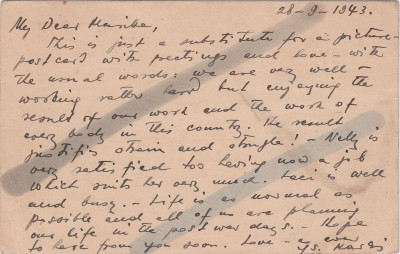 28-9-1943.
My Dear Mariska,
This is just a substitute for a picture-
postcard with greetings and love - with
the usual words: we are very well -
working rather hard but enjoying the
result of our work and the work of
every body in this country. The result
justifis strain and struggle! - Nelly is
very satisfied too having now a job
which suits her very much. Laci is well
and busy. - Life is as normal as
possible and all of us are planning
our life in the post war days. - Hope
to hear from you soon. Love - as ever